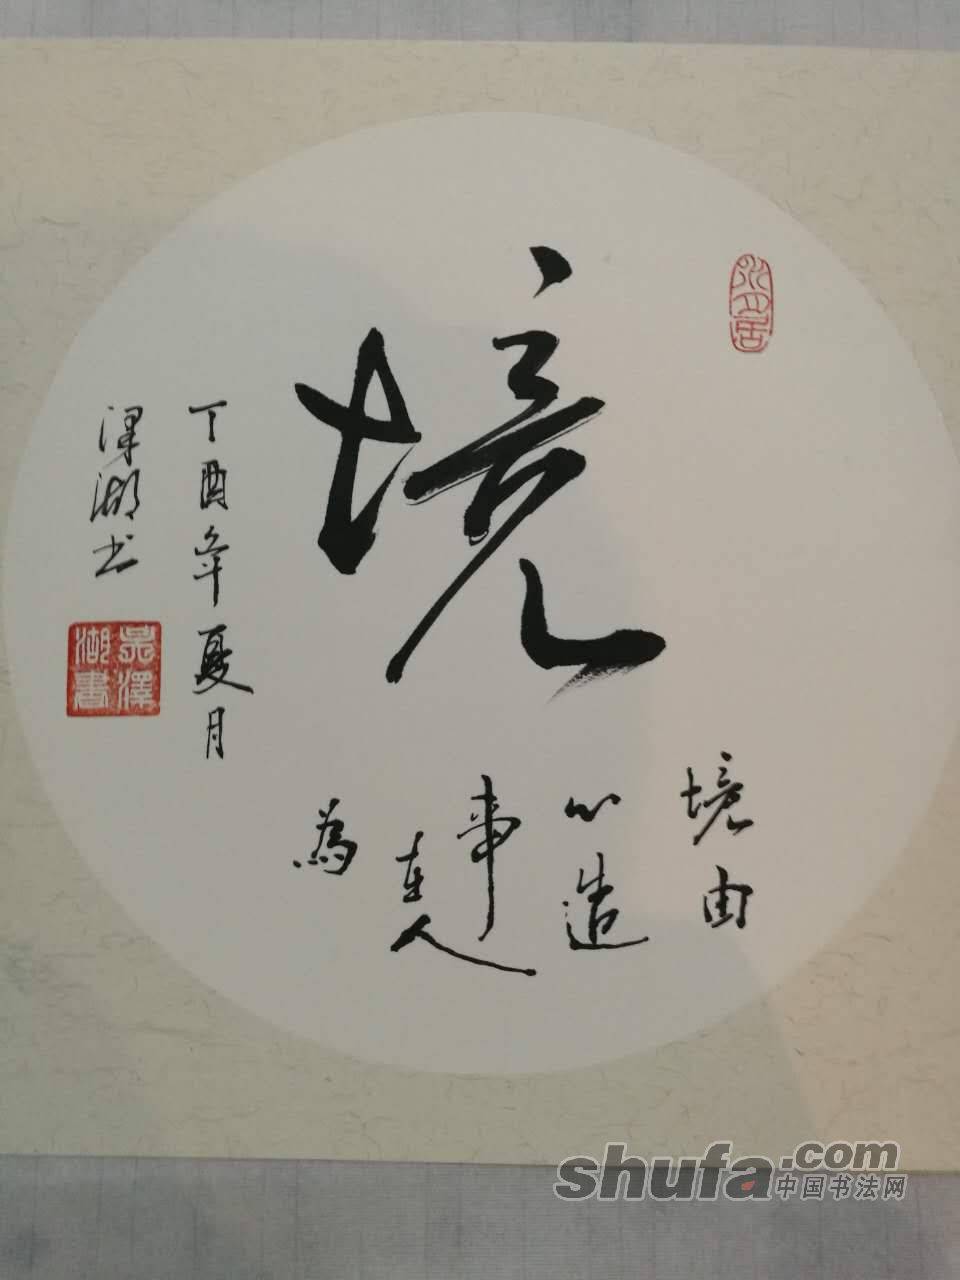 境
境由
心造
事
在人
為
丁酉年夏月
澤湖书
吴澤湖書
shufa.com
中国书法网